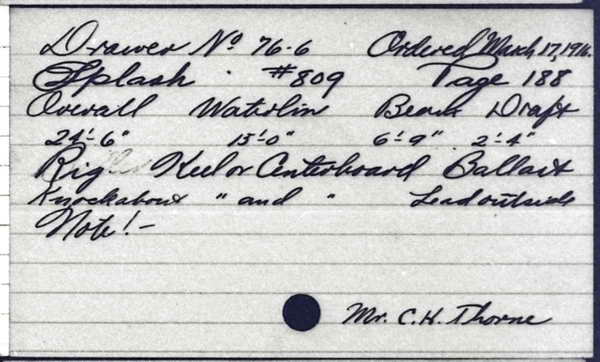 Drawer No 76-6 Ordered March 17, 1916.
Splash. #809 Page 188
Overall Waterlin Beam Draft
24'-6" 15'-0" 6'-9" 2'-4"
Rig Keel or Centerboard Ballast
Knockabout " and " Lead outside
Note!-
Mr. C. H. Thorne